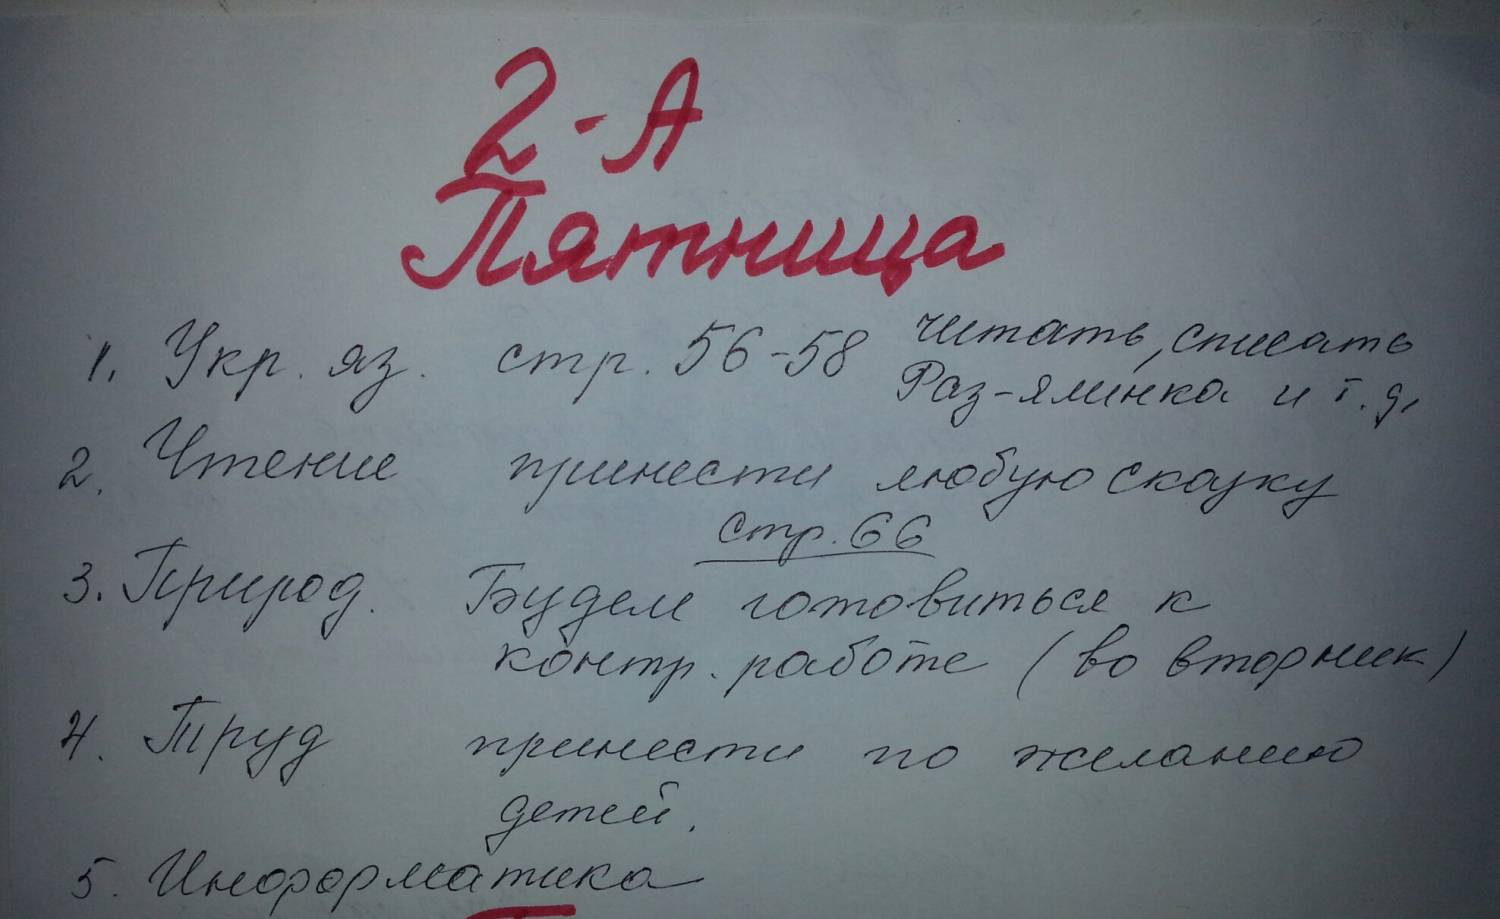 2-А
Пятница
1. Укр. яз. стр. 56-58 читать, списать
Раз-ялинка и т.д.
2. Чтение принести любую сказку
стр. 66
3. Природ. Будем готовиться к
контр. работе (во вторник)
4. Труд принести по желанию
детей.
5. Информатика